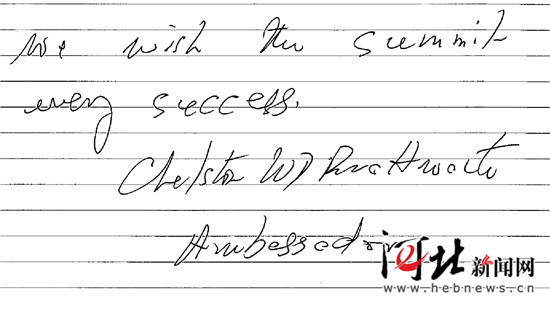 We wish the summit
every success.
Chelston WD Brathwaite
Ambassador
河北新闻网
www.hebnews.cn